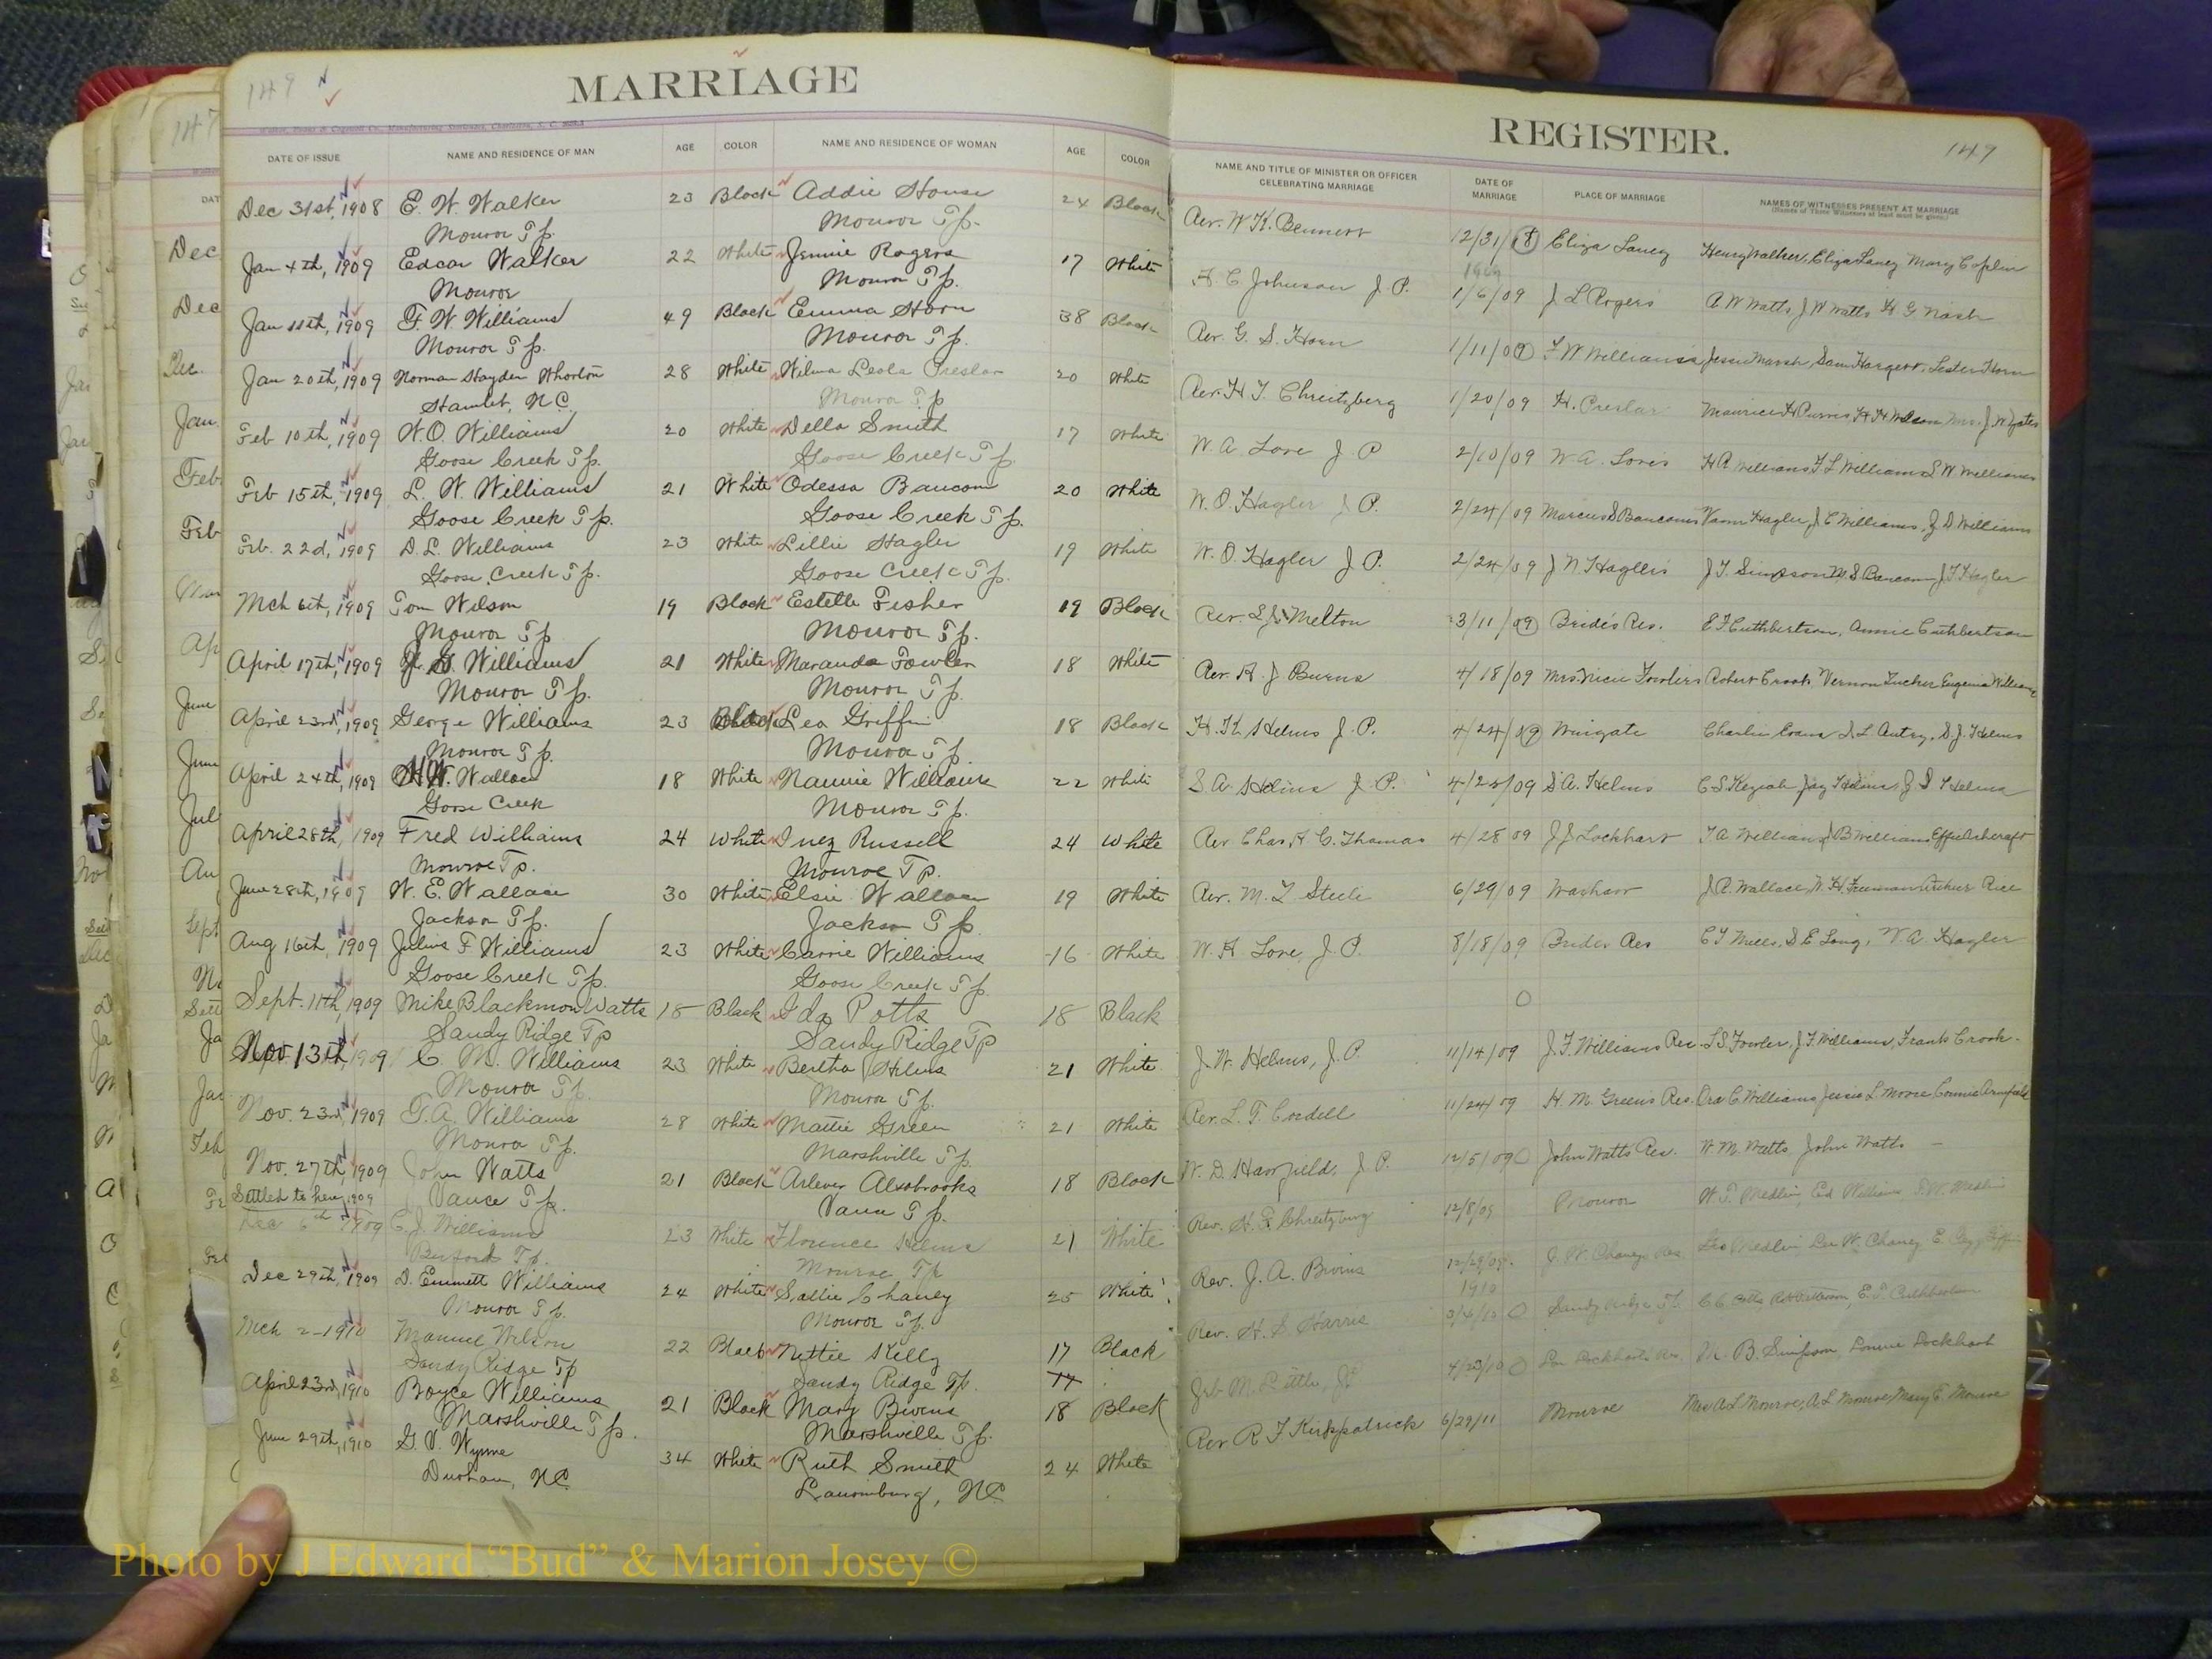 149
MARRIAGE
DATE OF ISSUE NAME AND RESIDENCE OF MAN AGE COLOR NAME AND RESIDENCE OF WOMAN AGE COLOR
Dec 31st, 1908 E. W. Walker 23 Black Addie House 24 Black
Monroe Tp. Monroe Tp.
Jan 4th, 1909 Edcar Walker 22 White Jennie Rogers 17 White
Monroe Monroe Tp.
Jan 11th, 1909 F. W Williams 49 Black Emma Horn 38 Black
Monroe Tp. Monroe Tp.
Jan 20th, 1909 Norman Hayden Whorton 28 White Wilma Leola Preslar 20 White
Hamlet, N.C. Monroe Tp
Feb 10th, 1909 W.O. Williams 20 White Della Smith 17 White
Goose Creek Tp. Goose Creek Tp.
Feb 15th, 1909 L. W. Williams 21 White Odessa Baucom 20 White
Goose Creek Tp. Goose Creek Tp.
Feb. 22d, 1909 D. L. Williams 23 White Lillie Hagler 19 White
Goose Creek Tp. Goose Creek Tp.
Mch 6th, 1909 Tom Wilson 19 Black Estelle Fisher 19 Black
Monroe Tp Monroe Tp.
April 17th, 1909 Williams 21 White Maranda Fowler 18 White
Monroe Tp. Monroe Tp.
April 23rd, 1909 George Williams 23 Black Lea Griffin 18 Black
Monroe Tp. Monroe Tp.
April 24th, 1909 W. Wallace 18 White Nannie Williams 22 White
Goose Creek Monroe Tp.
April 28th, 1909 Fred Williams 24 White Inez Russell 24 White
Monroe Tp. Monroe Tp.
June 28th, 1909 W. E. Wallace 30 White Elsie Wallace 19 White
Jackson Tp. Jackson Tp.
Aug 16th, 1909 Julius F Williams 23 White Carrie Williams 16 White
Goose Creek Tp. Goose Creek Tp.
Sept. 11th, 1909 Mike Blackmon Watts 18 Black Ida Potts 18 Black
Sandy Ridge Tp Sandy Ridge Tp
Nov. 13th, 1909 C. M. Williams 23 White Bertha Helms 21 White
Monroe Tp. Monroe Tp.
Nov. 23rd, 1909 T.A. Williams 28 White Mattie Green 21 White
Monroe Tp. Marshville Tp.
Nov. 27th, 1909 John Watts 21 Black Arlever Alsobrooks 18 Black
Settled to here, 1909 Vance Tp. Vance Tp.
Dec 6th 1909 C. J. Williams 23 White Florence Helms 21 White
Buford Tp. Monroe Tp
Dec 29th, 1909 D. Emmett Williams 24 White Sallie Chaney 25 White
Monroe Tp. Monroe Tp.
Mch 2-1910 Manuel Wilson 22 Black Nettie Kelly 17 Black
Sandy Ridge Tp Sandy Ridge Tp. 17
April 23rd, 1910 Boyce Williams 21 Black Mary Bivens 18 Black
Marshville Tp. Marshville Tp.
June 29th, 1910 G. V. Wynne 34 White Ruth Smith 24 White
Durham, NC Laurinburg, NC
REGISTER.
149
NAME AND TITLE OF MINISTER OR OFFICER CELEBRATING MARRIAGE DATE OF MARRIAGE PLACE OF MARRIAGE NAMES OF WITNESSES PRESENT AT MARRIAGE
(Names of Three Witnesses at least must be given.)
Rev. W. K. Bennett 12/31/8 Eliza Laney Henry Walker, Eliza Laney Mary Coplin
1909
H. C Johnson J. P. 1/6/09 J L Rogers A W Watts, J W Watts H G Nash
Rev. G. S. Horn 1/11/09 F W Williams Jesse Marsh, Sam Hargett, Lester Horn
Rev. H. F. Chreitzberg 1/20/09 H. Preslar Maurice H Purvis, H H Wilson, Mrs. J W Yates
W. A. Love J. P 2/10/09 W A. Love's H A Williams F L Williams S W Williams
W. O. Hagler J P. 2/24/09 Marcus S Baucoms Vann Hagler, J C Williams, J D Williams
W. O. Hagler J P. 2/24/09 J N Hagler's J. T. Simpson M S Baucom J T Hagler
Rev. S. Melton 3/11/09 Bride's Res. E F Cuthbertson, Annie Cuthbertson
Rev. R. J Burns 4/18/09 Mrs Fowlers Robert Crook, Vernon Tucker Eugenia Williams
H. K Helms J. P. 4/24/09 Wingate Charlie Evans J. L Autry, S. J. Helms
S. A. Helms J. P. 4/25/09 S. A. Helms C S. Keziah Jay Helms, J S Helms
Rev Chas. H. C. Thomas 4/28 09 J J Lockhart T. A. Williams, B Williams Effie Ashcraft
Rev. M. T Steele 6/29/09 Waxhaw J. R. Wallace, W. H. Freeman Arthur Rice
W. A Love, J. P. 8/18/09 Brides Res C T Mills, S E Long, W. A. Hagler
J. W. Helms, J. P. 11/14/09 J. T. Williams Res. L S Fowler, J T Williams, Frank Crook.
Rev. L. T. Cordell 11/24/09 H. M. Greens Res. Ora C Williams Jessie L Moore Connie Armfield
W. D. Harfield, J. P. 12/5/09 John Watts Res. W. M. Watts, John Watts
Rev. H. F. Chreitzberg 12/8/09 Monroe W. F. Medlin, Ed Williams F. W. Medlin
Rev. J. A. Bivins 12/29/09. J. W. Chaneys Res Medlin Lee W. Chaney
1910
Rev. H. S Harris 3/6/10 Sandy Ridge Tp. E. F. Cuthbertson
M. Little, JP 4/23/10 Lockharts Res. M. B. Simpson, Lonnie Lockhart
Rev R F Kirkpatrick 6/29/11 Monroe Mrs A L Monroe, A L Monroe, Mary E. Monroe
Photo by J Edward “Bud” & Marion Josey ©